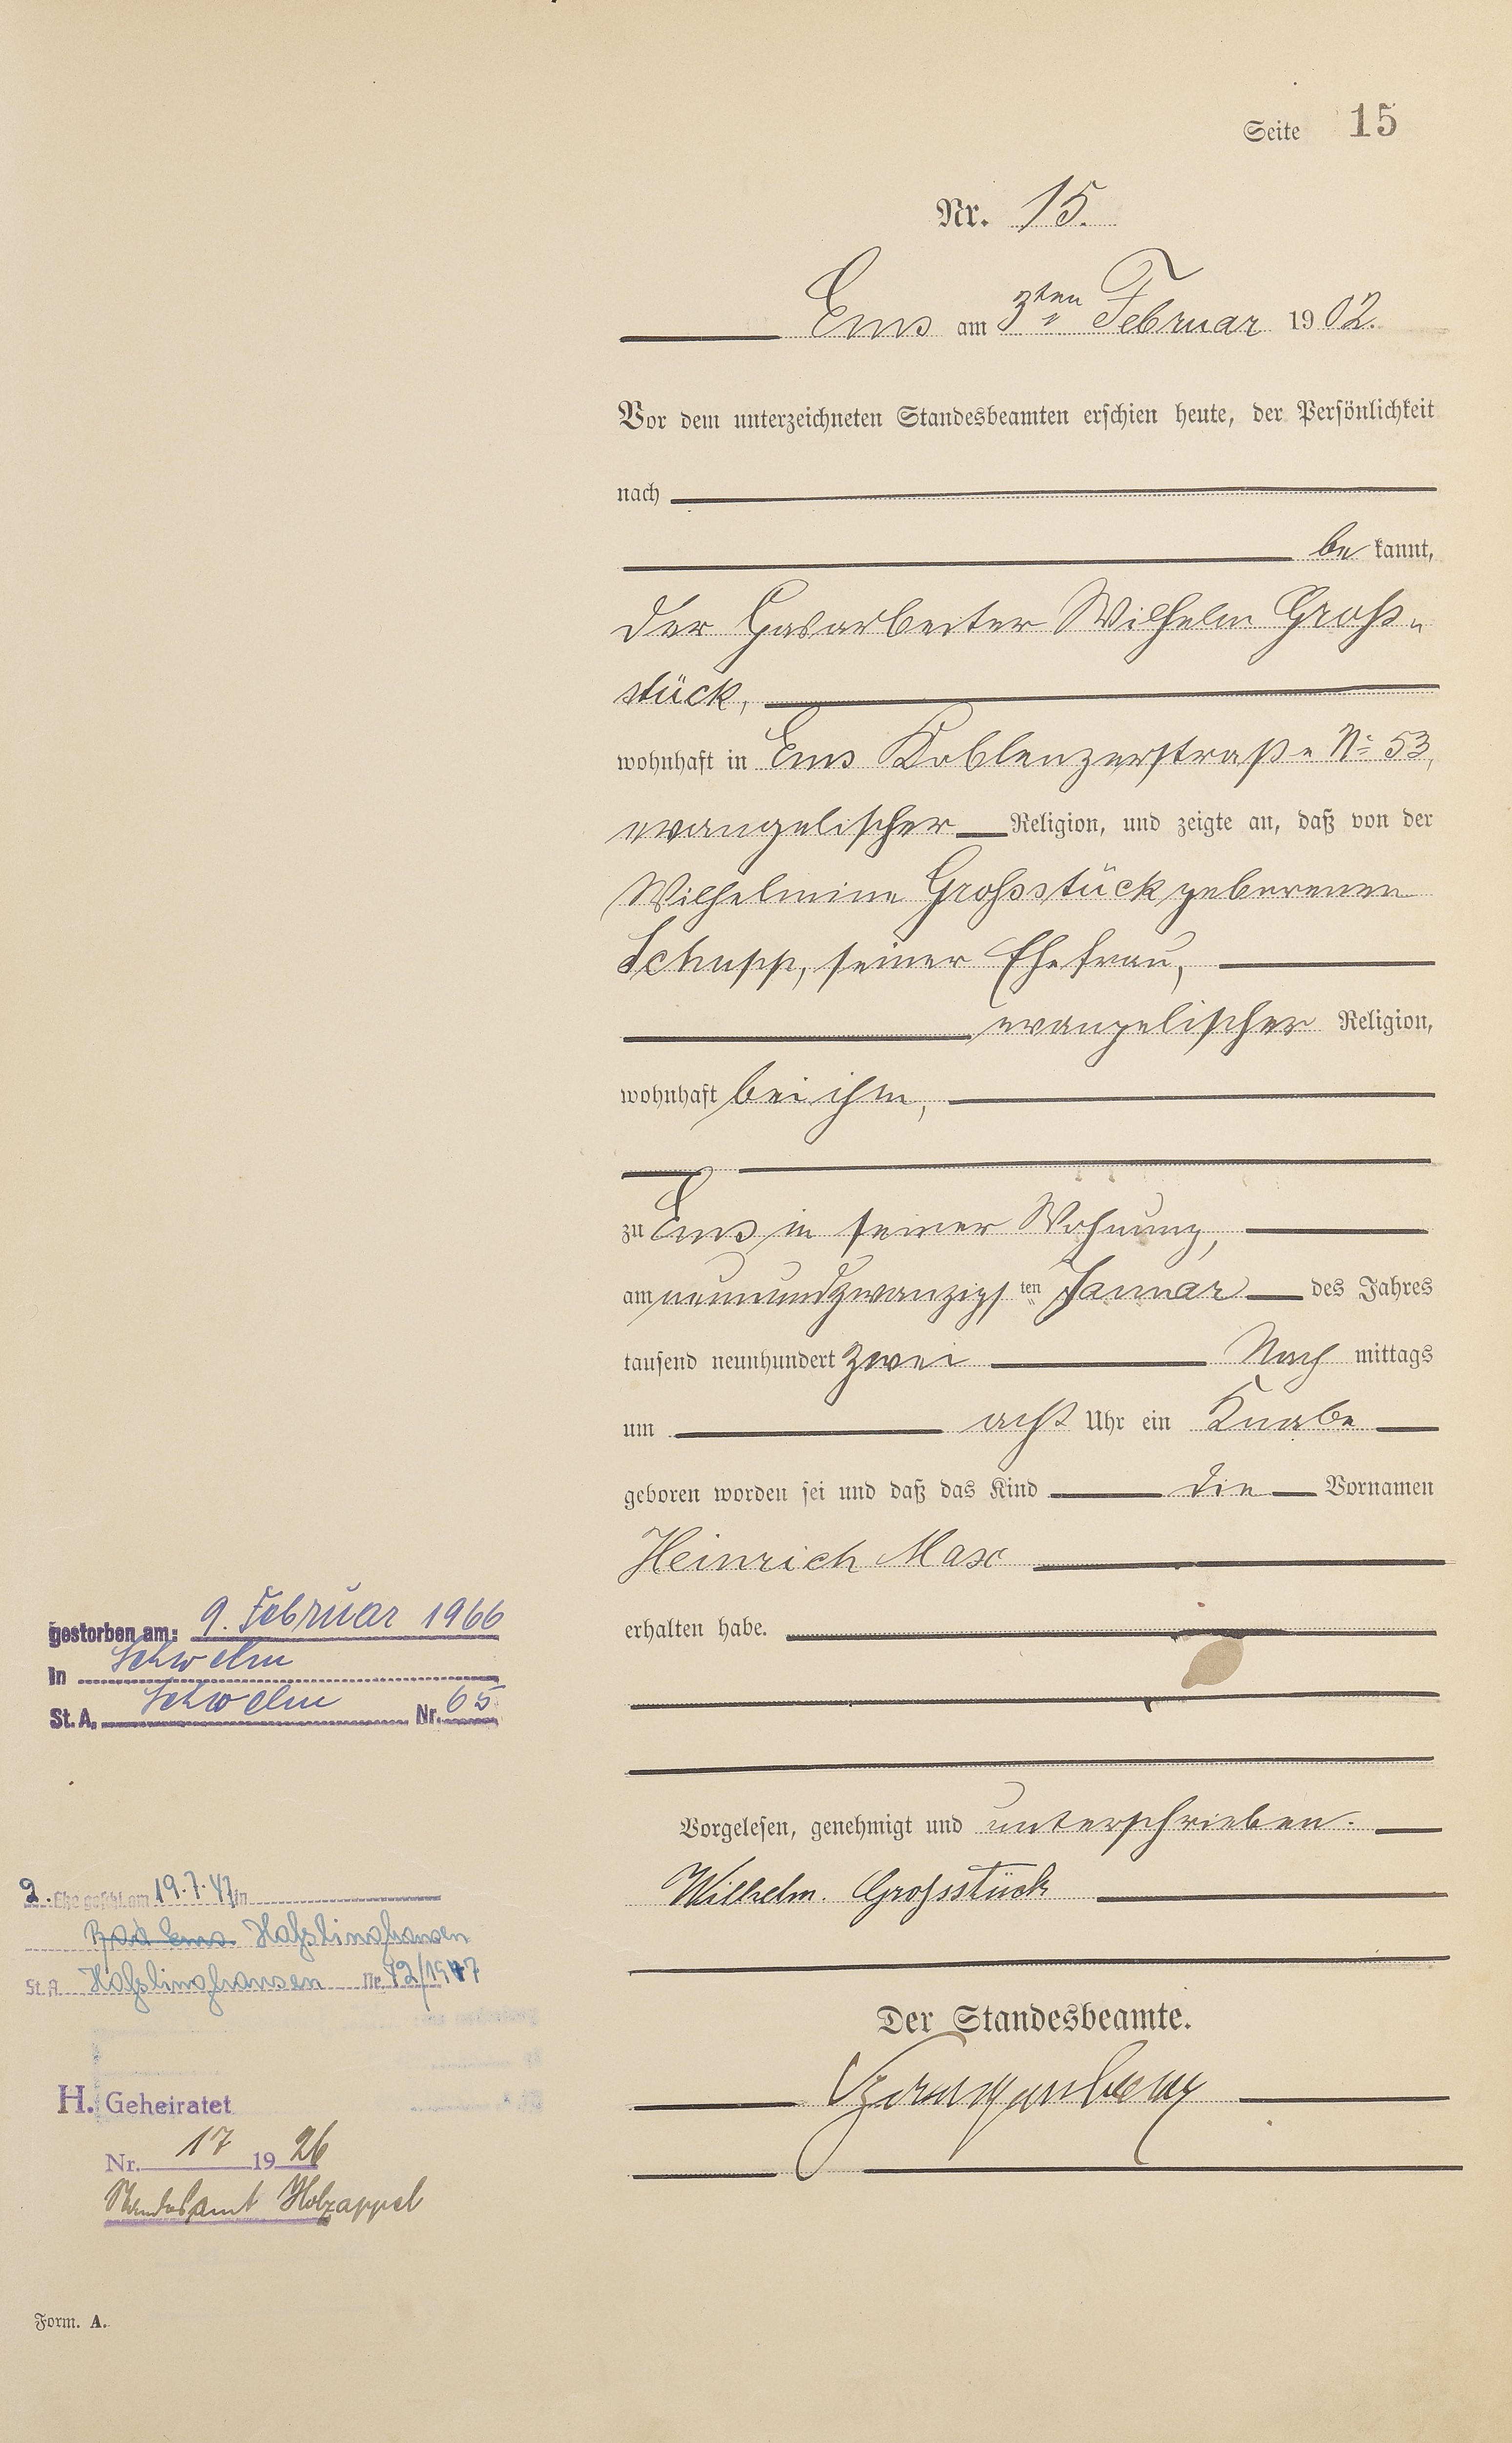 Seite 15
Nr. 15.
Ems am 3ten Februar 1902.
Vor dem unterzeichneten Standesbeamten erschien heute, der Persönlichkeit
nach
be kannt,
der Gasarbeiter Wilhelm Groß-
stück,
wohnhaft in Ems Koblenzerstraße No 53,
evangelischer Religion, und zeigte an, daß von der
Wilhelmine Großstück geborenen
Schupp, seiner Ehefrau,
evangelischer Religion,
wohnhaft bei ihm,
zu Ems in seiner Wohnung,
am neunundzwanzigsten Januar des Jahres
tausend neunhundert zwei Nach mittags
um acht Uhr ein Knabe
geboren worden sei und daß das Kind die Vornamen
Heinrich Max
erhalten habe.
Vorgelesen, genehmigt und unterschrieben.
Wilhelm. Grossstück
Der Standesbeamte.
gestorben am: 9. Februar 1966
in Schwelm
St. A. Schwelm Nr. 65
2. Ehe geschl. am 19.7.47 in
Bad Ems Haßlinghausen
St. A. Haßlinghausen Nr. 92/1947
H. Geheiratet
Nr. 17 1926
Standesamt Holzappel
Form. A.